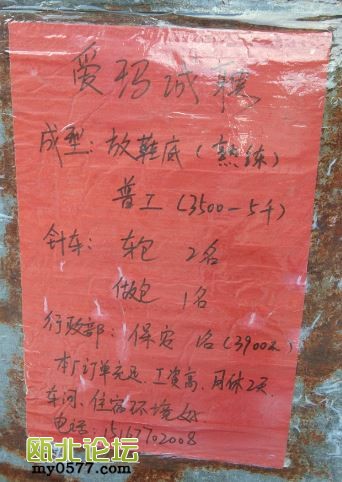 爱玛诚聘
成型: 放鞋底 (熟练)
普工 (3500-5千)
针车: 车包 2名
做包 1名
行政部: 保安 1名 (3900元)
本厂订单充足、工资高、月休2天、
车河、住宿环境好
电话: 15167702008
瓯北论坛
my0577.com